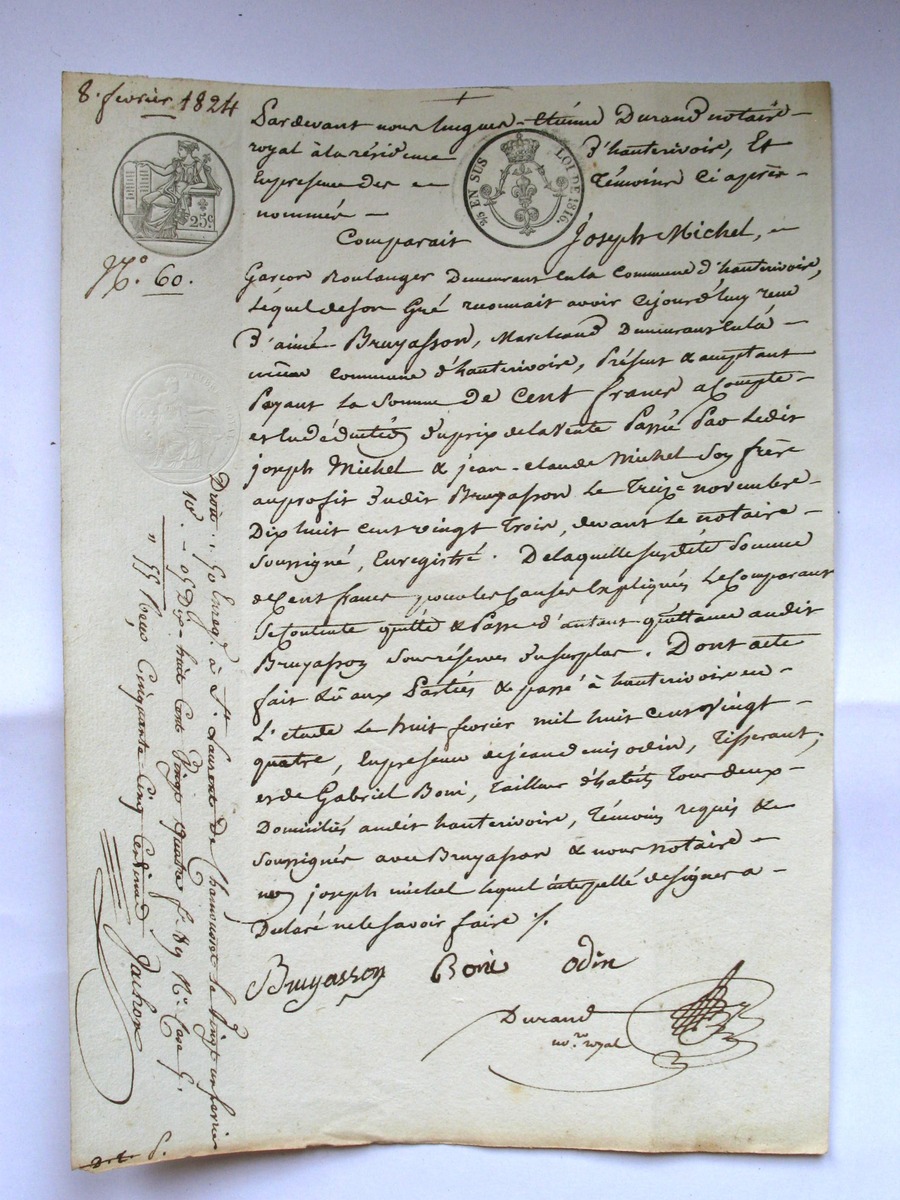 8. fevrier 1824
+
Pardevant nous hugues - Etienne Durand notaire -
royal à la résidence d'hauterivoire, Et
En présence des témoins ci après -
nommés -
25c.
5/10 EN SUS LOI DE 1816.
Comparait Joseph Michel,
N.° 60.
Garcon Boulanger Demeurant en la Commune d'hauterivoire,
Lequel de son Gré reconnait avoir cejourd'huy reçu
d'aimé Bruyasson, Marchand Demeurant en la -
même commune d'hauterivoire, Présent & acceptant
Payant la somme de cent francs acompte -
et en déduction du prix de la vente Passée Par Ledit
joseph Michel & jean - claude Michel Son frère
au profit dudit Bruyasson le Treize novembre -
Dix huit cent vingt Trois, devant le notaire -
soussigné, Enregistré. De laquelle susdite somme
de Cent francs pour les Causes Expliquées Le Comparant
se Contente quitte & Passe d'autant quittance audit
Bruyasson sous réserves du surplus. Dont acte
fait Lû aux Parties & passé à hauterivoire en -
L'étude Le huit fevrier mil huit cent vingt -
quatre, En présence de jean denis odin, Tisserant,
et de Gabriel Boni, tailleur d'habits Tous deux -
Domiciliés audit hauterivoire, Témoins requis &
soussignés avec Bruyasson & nous notaire -
non joseph michel lequel interpellé de signer a -
Declaré ne le savoir faire ./.
Bruyasson Boni odin
Durand
no.re royal
Droit " 50 Enreg.é à S.t Laurent De Chamousset le vingt un fevrier
10.e - 05 Dix-huit Cent Vingt quatre f.° 89 N.° Case 5.
" 55 Reçu Cinquante Cinq Centimes Jachon